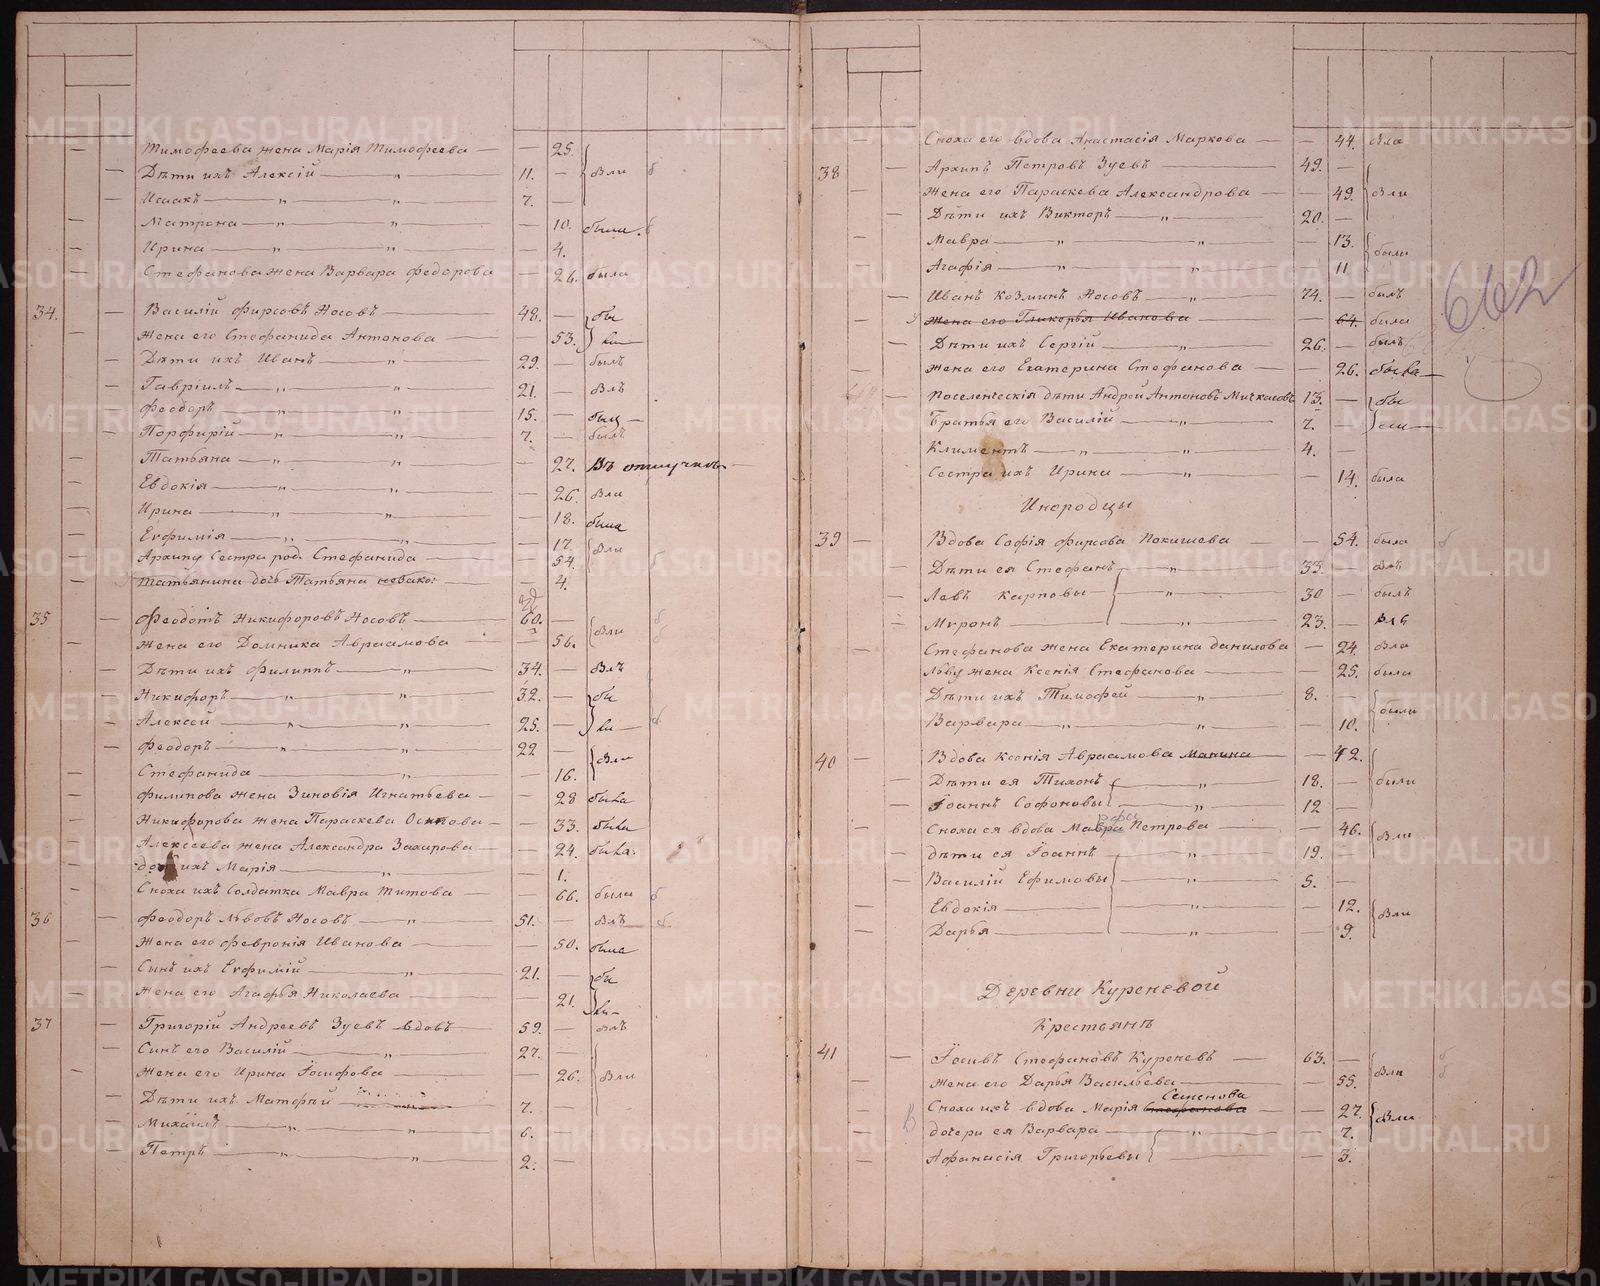 Тимофеева жена Марія Тимофеева — 25.
Дѣти ихъ Алексій — " 11. — Вли б
Исаакъ — " " 7. —
Матрона — " " — 10. была. б
Ирина — " " — 4.
Стефанова жена Варвара Федорова — 26. была
34. Василій Фирсовъ Носовъ — 48. — бы
Жена его Стефанида Антонова — 53. ли
Дѣти ихъ Иванъ " 29. — былъ
Гавріилъ — " " 21. — Влъ
Феодоръ " " 15. —
Порфирій — " " 7. — былъ
Татьяна — " " — 27. Въ отлучкѣ
Евдокія — " " — 26. Вла
Ирина — " " — 18. была
Евфимія — " " — 17. Вли
Архипу Сестра род. Стефанида — 54.
Татьянина дочь Татьяна незакон — 4.
35 Феодотъ Никифоровъ Носовъ — 60. — Вли б
Жена его Домника Авраамова — 56. б
Дѣти ихъ Филиппъ — " 34. — Влъ
Никифоръ " " 32. — бы
Алексѣй — " " 25. — ли б
Феодоръ — " " 22 — Вли
Стефанида — " — 16.
Филипова жена Зиновія Игнатьева — 28 была
Никифорова жена Параскева Осипова — 33. была
Алексеева жена Александра Захарова — 24. была
дочь ихъ Марія — " — 1.
Сноха ихъ Солдатка Мавра Титова — 66. была б
36 Феодоръ Львовъ Носовъ — " 51. — Влъ б
Жена его Февронія Иванова — 50. была
Сынъ ихъ Евфимій — " 21. — бы
Жена его Агафья Николаева — 21. ли
37 Григорій Андреевъ Зуевъ вдовъ — 59. — Влъ
Сынъ его Василій — " 27. —
Жена его Ирина Іосифова — 26. Вли
Дѣти ихъ Матфѣй 7. —
Михаилъ — " " 6. —
Петръ — " " 2. —
Сноха его вдова Анастасія Маркова — 44. Вла
38 Архипъ Петровъ Зуевъ — 49. —
Жена его Параскева Александрова — 49. Вли
Дѣти ихъ Викторъ — " 20. —
Мавра — " " — 13.
Агафія — " " — 11 были
Иванъ Козминъ Носовъ — " 74. — былъ
Жена его Гликерья Иванова — 64. была
Дѣти ихъ Сергій — " 26. — былъ
Жена его Екатерина Стефанова — 26. была
662
Поселенческія дѣти Андрей Антоновъ Мичкасовъ 13. — бы
Братья его Василій — " 7. — ли
Климентъ — " " 4. —
Сестра ихъ Ирина — " — 14. была
Инородцы
39 Вдова Софія Фирсова Покишева — 54. была б
Дѣти ея Стефанъ — " 33. — Влъ
Левъ Карповы — " 30 — былъ
Миронъ — " 23. — Влъ
Стефанова жена Екатерина Данилова — 24. Вла
Льву жена Ксенія Стефанова — 25. была
Дѣти ихъ Тимофей — " 8. —
Варвара — " " — 10. были
40 Вдова Ксенія Авраамова Макина — 42.
Дѣти ея Тихонъ " 18. — были
Іоаннъ Софоновы — " 12 —
Сноха ея вдова Мавра Петрова — 46. Вли
дѣти ея Іоаннъ " 19. —
Василій Ефимовы " 5. —
Евдокія — " — 12. Вли
Дарья — " — 9.
Деревни Куреневой
Крестьянъ
41 Іосивъ Стефановъ Куреневъ — 63. — Вли б
Жена его Дарья Васильева — 55. б
Семенова
Сноха ихъ вдова Марія Стефанова — 27. Вли
В дочери ея Варвара — " — 7.
Афанасія Григорьевы — 3.